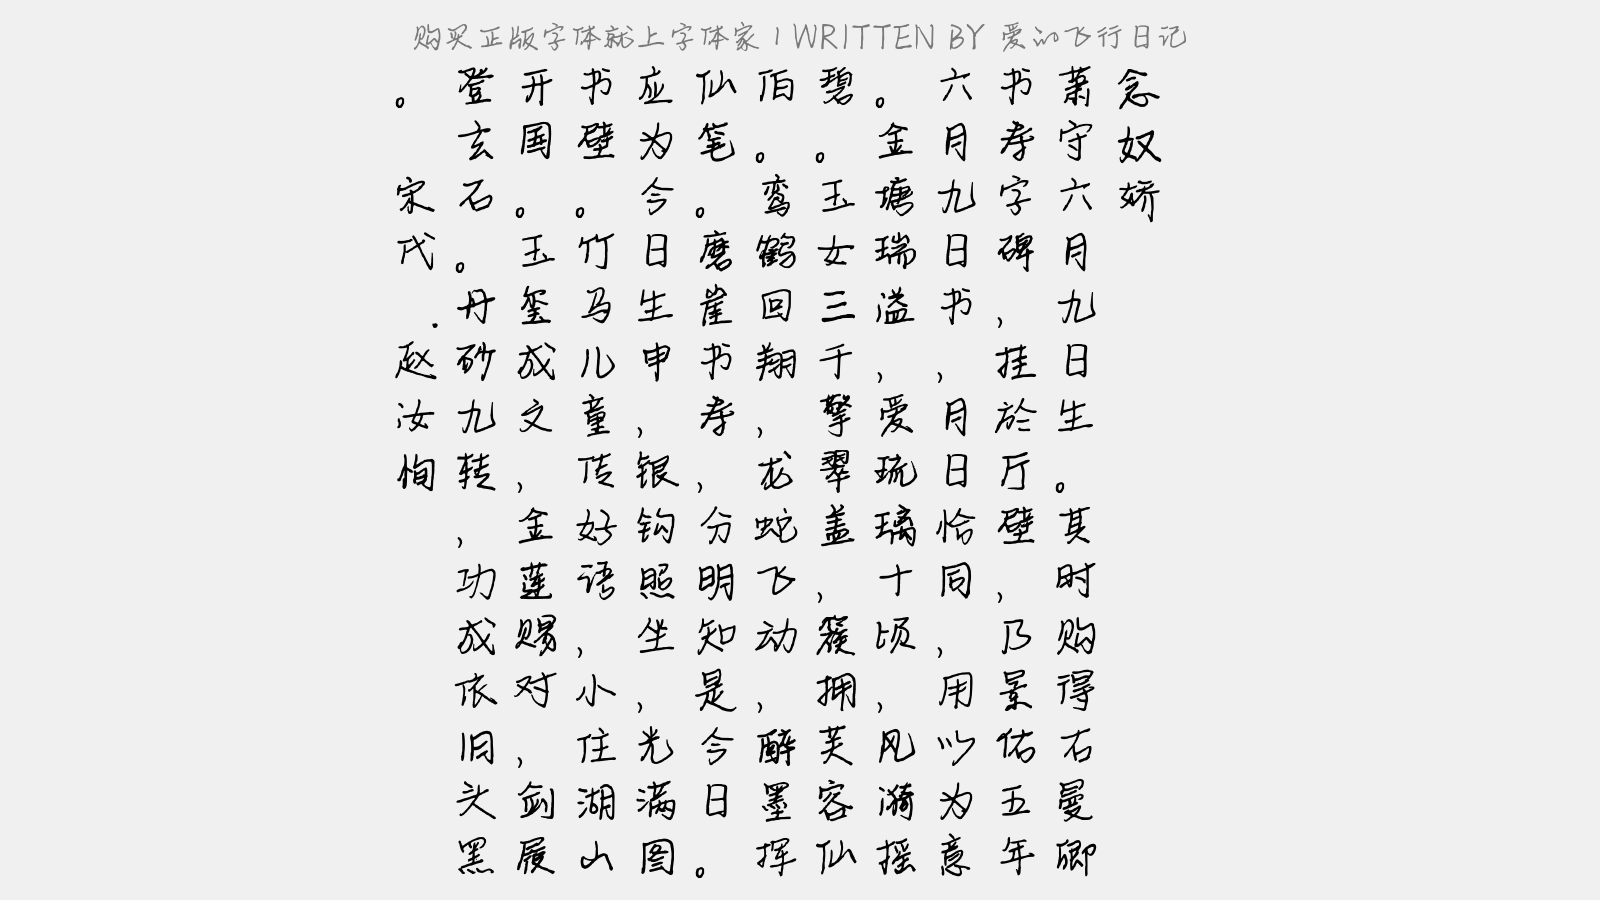 购买正版字体就上字体家 | WRITTEN BY 爱的飞行日记
念奴娇
萧守六月九日生。其时购得右曼卿
书寿字碑，挂於厅壁，乃景佑五年
六月九日书，月日恰同，用以为意
。金塘瑞溢，爱琉璃十顷，风漪摇
碧。玉女三千擎翠盖，簇拥芙容仙
伯。鸾鹤回翔，龙蛇飞动，醉墨挥
仙笔。磨崖书寿，分明知是今日。
应为今日生申，银钩照坐，光满图
书壁。竹马儿童传好语，小住湖山
开国。玉玺成文，金莲赐对，剑履
登玄石。丹砂九转，功成依旧头黑
。宋代.赵汝恂